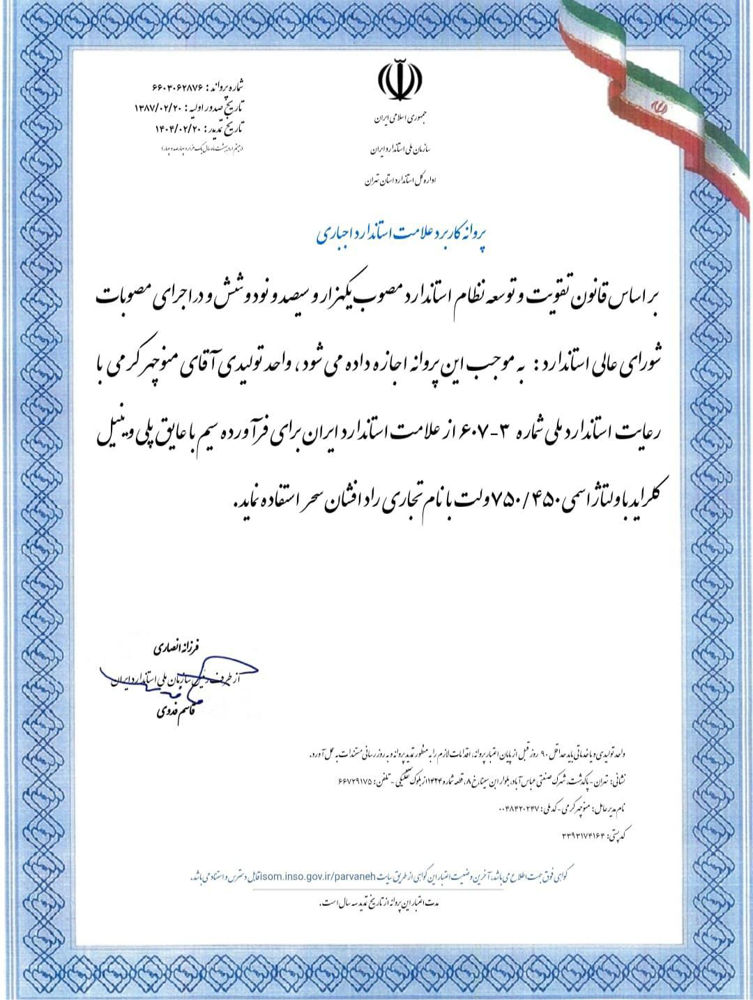 شماره پروانه: ۶۶۰۳۰۶۲۸۷۶
تاریخ صدور اولیه: ۱۳۸۷/۰۲/۲۰
تاریخ تمدید: ۱۴۰۴/۰۲/۲۰
جمهوری اسلامی ایران
سازمان ملی استاندارد ایران
اداره کل استاندارد استان تهران
پروانه کاربرد علامت استاندارد اجباری
بر اساس قانون تقویت و توسعه نظام استاندارد مصوب یکهزار و سیصد و نود و شش و در اجرای مصوبات
شورای عالی استاندارد: به موجب این پروانه اجازه داده می شود، واحد تولیدی آقای منوچهر کرمی با
رعایت استاندارد ملی شماره ۳-۶۰۷ از علامت استاندارد ایران برای فرآورده سیم با عایق پلی وینیل
کلراید با ولتاژ اسمی ۷۵۰/۴۵۰ ولت با نام تجاری راد افشان سحر استفاده نماید.
فرزانه انصاری
از طرف رئیس سازمان ملی استاندارد ایران
قاسم فدوی
واحد تولیدی و یا خدماتی باید حداقل ۹۰ روز قبل از پایان اعتبار پروانه، اقدامات لازم را به منظور تمدید پروانه و به روز رسانی مستندات به عمل آورد.
نشانی: تهران - پاکدشت، شهرک صنعتی عباس آباد، بلوار ابن سینا، خ ۸، قطعه شماره ۱۴۲۴ از بلوک تفکیکی - تلفن: ۶۶۷۲۹۱۷۵
نام مدیر عامل: منوچهر کرمی - کد ملی: ۰۰۴۸۴۲۰۲۴۷
کد پستی: ۳۳۹۳۱۷۴۱۶۴
گواهی فوق جهت اطلاع می باشد. آخرین وضعیت اعتبار این گواهی از طریق سایت isom.inso.gov.ir/parvaneh قابل دسترس و استناد می باشد.
مدت اعتبار این پروانه از تاریخ تمدید سه سال است.